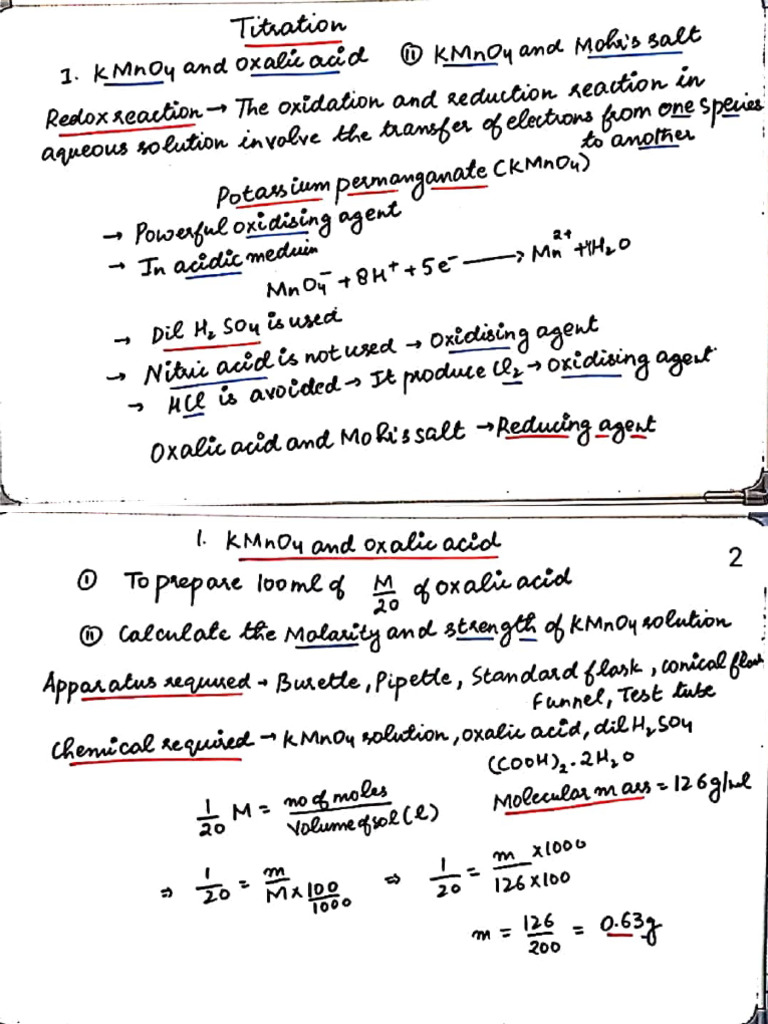 Titration
1. KMnO₄ and oxalic acid (ii) KMnO₄ and Mohr's salt
Redox reaction → The oxidation and reduction reaction in
aqueous solution involve the transfer of electrons from one species
to another
Potassium permanganate (KMnO₄)
→ Powerful oxidising agent
→ In acidic medium
MnO₄⁻ + 8H⁺ + 5e⁻ ⟶ Mn²⁺ + 4H₂O
→ Dil H₂SO₄ is used
→ Nitric acid is not used → Oxidising agent
→ HCl is avoided → It produce Cl₂ → oxidising agent
Oxalic acid and Mohr's salt → Reducing agent
1. KMnO₄ and oxalic acid
2
(i) To prepare 100ml of M/20 of oxalic acid
(ii) Calculate the Molarity and strength of KMnO₄ solution
Apparatus required → Burette, Pipette, Standard flask, conical flask
Funnel, Test tube
Chemical required → KMnO₄ solution, oxalic acid, dil H₂SO₄
(COOH)₂·2H₂O
1/20 M = no of moles / Volume of sol (l) Molecular mass = 126 g/ml
⇒ 1/20 = m / M × 100/1000 ⇒ 1/20 = m × 1000 / 126 × 100
m = 126/200 = 0.63g